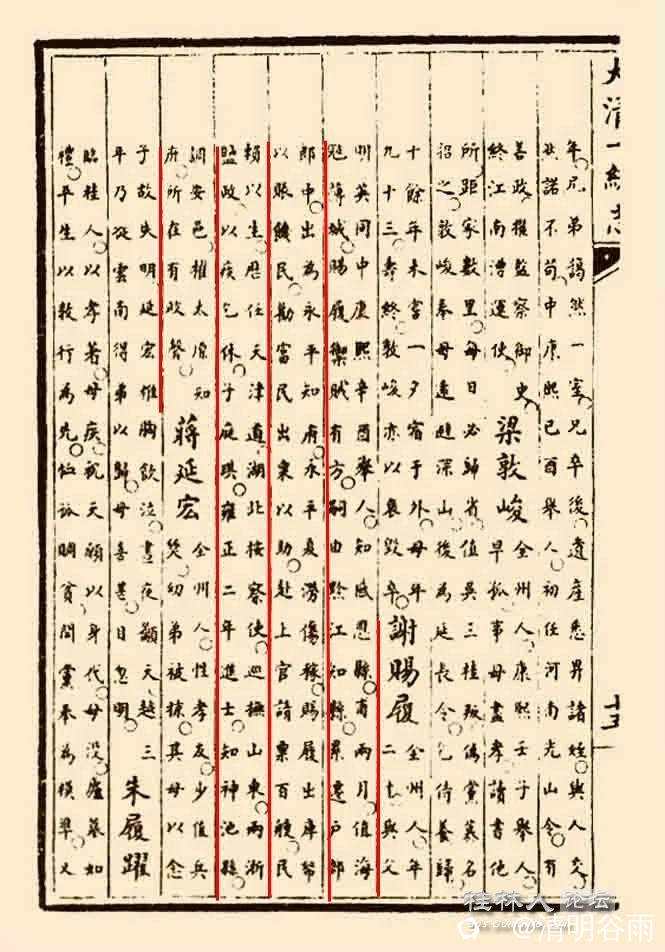 大清一統志
年凡弟藹然一室兄卒後遺産悉畀諸姪與人交
然諾不苟中康熙己酉舉人初任河南光山令有
善政擢監察御史
終江南漕運使
梁敦峻
全州人康熙壬子舉人
早孤事母盡孝讀書他
所距家數里每日必歸省值吳三桂叛偽黨慕名
招之敦峻奉母遠避深山後為延長令乞侍養歸
十餘年未嘗一夕宿于外母年
九十三壽終敦峻亦以哀毀卒
謝賜履
全州人年
二七與父
明英同中康熙辛酉舉人知咸恩縣甫兩月值海
冦薄城賜履禦賊有方嗣由黔江知縣累遷戶部
郎中出為永平知府永平夏澇傷稼賜履出庫帑
以賑饑民勸富民出粟以助赴上官請粟百艘民
賴以生歷任天津道湖北按察使巡撫山東兩浙
鹽政以疾乞休子庭琪雍正二年進士知神池縣
調安邑擢太原知
府所在有政聲
蔣延宏
全州人性孝友少值兵
燹幼弟被掠其母以念
子故失明延宏椎胸飲泣晝夜顲天越三
年乃從雲南得弟以歸母喜甚目忽明
朱履躍
臨桂人以孝著母疾祝天願以身代母沒廬墓如
禮平生以敦行為先恤孤賙貧閭黨奉為模凖又
桂林人论坛
@清明谷雨